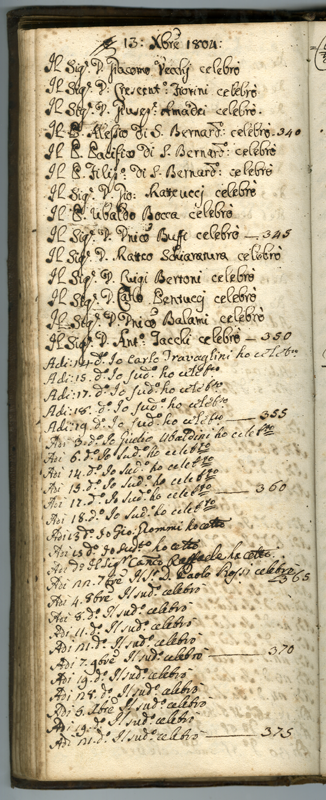 13: Xbre 1804:
Il Sigr. D. Giacomo Vecchj celebrò
Il Sigr. D. Crescent.o Fiorini celebrò
Il Sigr. D. Giusep.e Amadei celebrò.
Il P. Alesio di S. Bernard.o celebrò. 340
Il P. Pacifico di S. Bernard.o: celebrò
Il P. Filip.o di S. Bernard.o: celebrò
Il Sigr. D. Gio: Matteucci celebrò
Il P. Ubaldo Bocca celebrò
Il Sigr. D. Dnico Buffi celebrò — 345
Il Sigr. D. Matteo Schiaratura celebrò
Il Sigr. D. Luigi Bertoni celebrò
Il Sigr. D. Carlo Bentucci celebrò
Il Sigr. D. Dnico Balami celebrò
Il Sigr. D. Ant.o Iacchi celebrò — 350
Adi: 14: d.o Io Carlo Travaglini ho celebto
Adi: 15. d.o Io sud.o ho celebto
Adi: 17: d.o Io sud.o ho celebto
Adi: 18: d.o Io sud.o ho celebto
Adi: 19: d.o Io sud.o ho celebto — 355
Adi 3: d.o Io Giulio Ubaldini ho celebto
Adi 6: d.o Io sud.o ho celebto
Adi 14: d.o Io sud.o ho celebto
Adi 13: d.o Io sud.o ho celebto
Adi 17: d.o Io sud.o ho celebto — 360
Adi 18: d.o Io sud.o ho celebto
Adi d.o Io Gio: ho
Adi 15 d.o Io sud.o ho
Adi d.o Il Sigr. ho
Adi 7bre Il S.r D. Paolo Rossi celebrò 365
Adi 4. 8bre Il sud.o celebrò
Adi 8: d.o Il sud.o celebrò
Adi 11: d.o Il sud.o celebrò
Adi d.o Il sud.o celebrò
Adi 7. 9bre Il sud.o celebrò — 370
Adi 19: d.o Il sud.o celebrò
Adi 28: d.o Il sud.o celebrò
Adi 5. Xbre Il sud.o celebrò
Adi 19: d.o Il sud.o celebrò
Adi d.o Il sud.o celebrò — 375